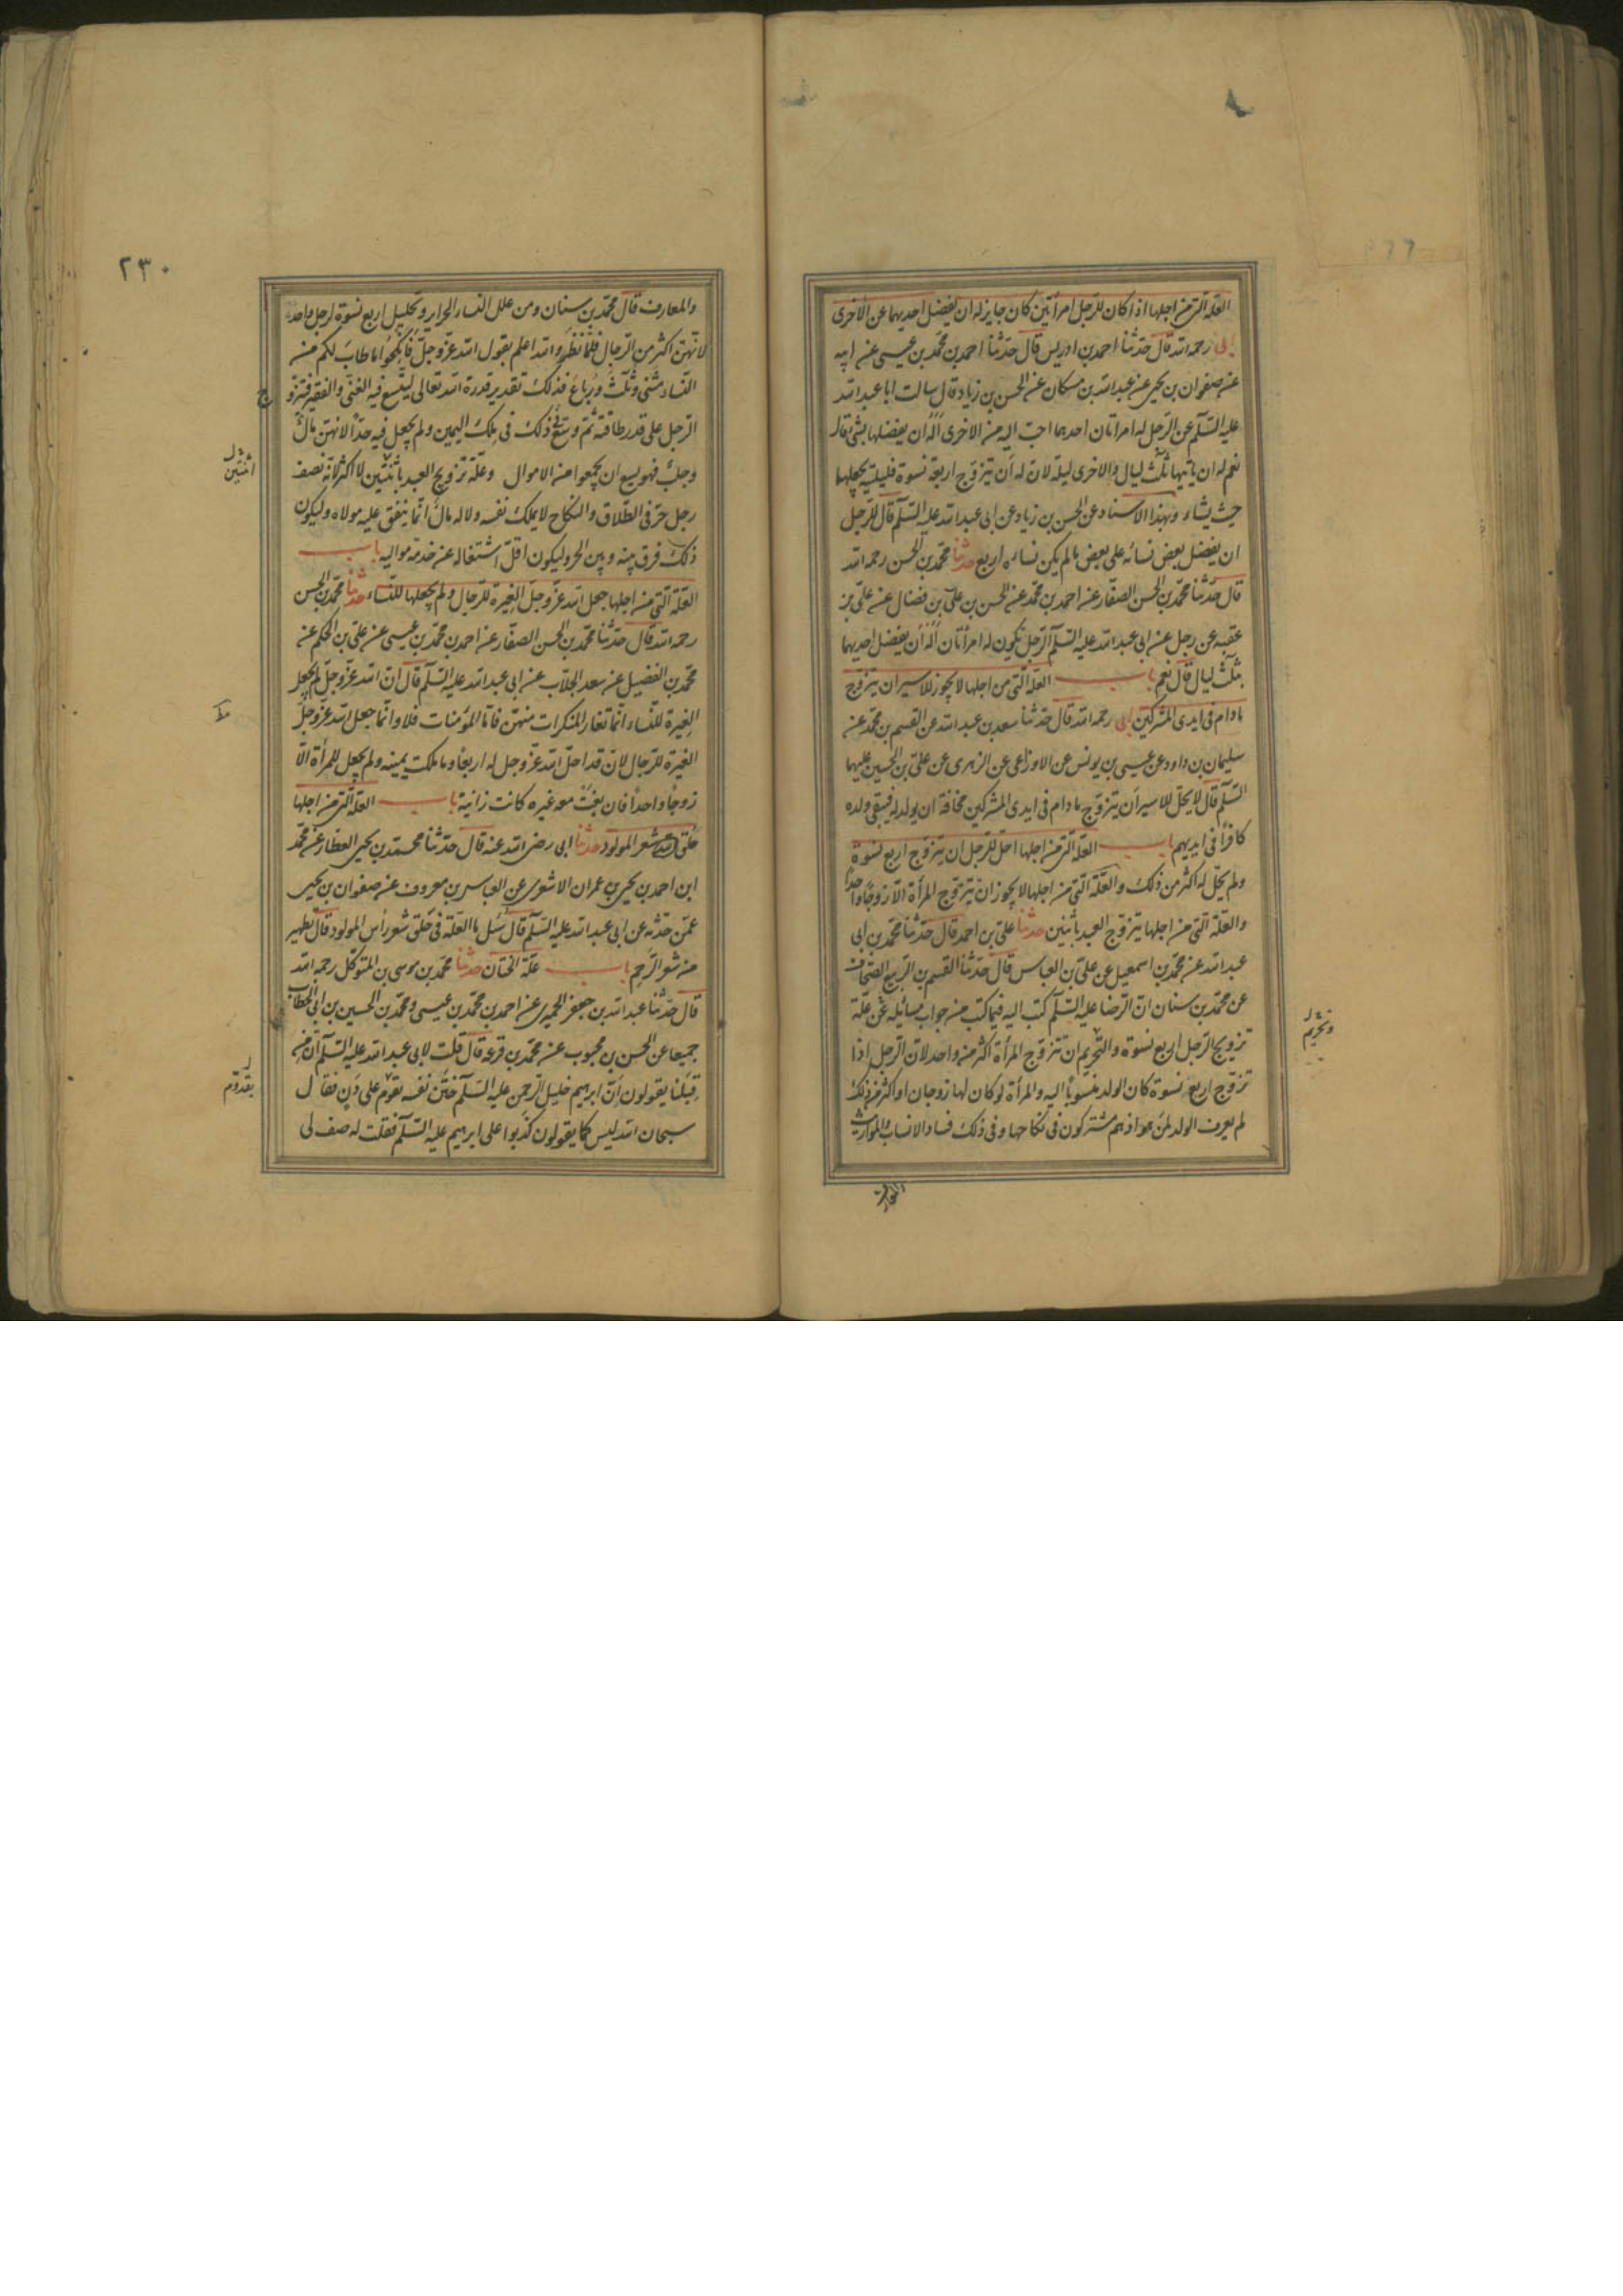 العلة التي من اجلها اذا كان للرجل امرأتين كان جايز له ان يفضل احديهما عن الاخرى
ابى رحمه الله قال حدثنا احمد بن ادريس قال حدثنا احمد بن محمد بن عيسى عن ابيه
عن صفوان بن يحيى عن عبد الله بن مسكان عن الحسن بن زياد قال سالت ابا عبد الله
عليه السلم عن الرجل له امرأتان احدهما احب اليه من الاخرى أله ان يفضلها بشئ قال
نعم له ان ياتيها ثلث ليال والاخرى ليلة لان له ان يتزوج اربعة نسوة فليليته يجعلهما
حيث يشاء وبهذا الاسناد عن الحسن بن زياد عن ابى عبد الله عليه السلم قال للرجل
ان يفضل بعض نسائه على بعض ما لم يكن نساءه اربع حدثنا محمد بن الحسن رحمه الله
قال حدثنا محمد بن الحسن الصفار عن احمد بن محمد عن الحسن بن على بن فضال عن على بن
عقبه عن رجل عن ابى عبد الله عليه السلم الرجل تكون له امرأتان أله ان يفضل احديهما
بثلث ليال قال نعم باب العلة التى من اجلها لا يجوز للاسير ان يتزوج
مادام فى ايدى المشركين ابى رحمه الله قال حدثنا سعد بن عبد الله عن القسم بن محمد عن
سليمان بن داود عن عيسى بن يونس عن الاوزاعى عن الزهرى عن على بن الحسين عليهما
السلم قال لا يحل للاسير ان يتزوج مادام فى ايدى المشركين مخافة ان يولد له فيبقى ولده
كافرا فى ايديهم باب العلة التى من اجلها احل للرجل ان يتزوج اربع نسوة
ولم يحل له اكثر من ذلك والعلة التى من اجلها لا يجوز ان يتزوج المرأة الا زوجا واحدا
والعلة التى من اجلها يتزوج العبد باثنين حدثنا على بن احمد قال حدثنا محمد بن ابى
عبد الله عن محمد بن اسمعيل عن على بن العباس قال حدثنا القسم بن الربيع الصحاف
عن محمد بن سنان ان الرضا عليه السلم كتب اليه فيما كتب من جواب مسائله عن علة
تزويج الرجل اربع نسوة والتحريم ان تتزوج المرأة اكثر من واحد لان الرجل اذا
تزوج اربع نسوة كان الولد منسوبا اليه والمرأة لو كان لها زوجان او اكثر من ذلك
لم يعرف الولد لمن هو اذ هم مشتركون فى نكاحها وفى ذلك فساد الانساب والمواريث
والمعارف
وتحريم
٢٣٠
والمعارف قال محمد بن سنان ومن علل النساء الحراير وتحليل اربع نسوة لرجل واحد
لانهن اكثر من الرجال فلما نظر والله اعلم بقول الله عز وجل فانكحوا ما طاب لكم من
النساء مثنى وثلث ورباع فذلك تقدير قدرة الله تعالى ليتسع فيه الغنى والفقير فتزوج
الرجل على قدر طاقته ثم وسع ذلك فى ملك اليمين ولم يجعل فيه حدا لانهن مال
وجلب فهو يسع ان يجمعوا من الاموال وعلة تزويج العبد باثنتين لا اكثر لانه نصف
رجل حر فى الطلاق والنكاح لا يملك نفسه ولا له مال انما ينفق عليه مولاه وليكون
ذلك فرق بينه وبين الحر وليكون اقل اشتغاله عن خدمة مواليه باب
العلة التى من اجلها جعل الله عز وجل الغيرة للرجال ولم يجعلها للنساء حدثنا محمد بن الحسن
رحمه الله قال حدثنا محمد بن الحسن الصفار عن احمد بن محمد بن عيسى عن على بن الحكم عن
محمد بن الفضيل عن سعد الجلاب عن ابى عبد الله عليه السلم قال ان الله عز وجل لم يجعل
الغيرة للنساء انما تغار المنكرات منهن فاما المؤمنات فلا وانما جعل الله عز وجل
الغيرة للرجال لان قد احل الله عز وجل له اربعا وما ملكت يمينه ولم يجعل للمرأة الا
زوجا واحدا فان بغت معه غيره كانت زانية باب العلة التى من اجلها
حلق شعر المولود حدثنا ابى رضى الله عنه قال حدثنا محمد بن يحيى العطار عن محمد
ابن احمد بن يحيى بن عمران الاشعرى عن العباس بن معروف عن صفوان بن يحيى
عمن حدثه عن ابى عبد الله عليه السلم قال سئل ما العلة فى حلق شعر رأس المولود قال تطهير
من شعر الرحم باب علة الختان حدثنا محمد بن موسى بن المتوكل رحمه الله
قال حدثنا عبد الله بن جعفر الحميرى عن احمد بن محمد بن عيسى ومحمد بن الحسين بن ابى الخطاب
جميعا عن الحسن بن محبوب عن محمد بن قزعة قال قلت لابى عبد الله عليه السلم ان من
قبلنا يقولون ان ابرهيم خليل الرحمن عليه السلم ختن نفسه بقدوم على دن فقال
سبحان الله ليس كما يقولون كذبوا على ابرهيم عليه السلم فقلت له صف لى
اثنتين
بقدوم